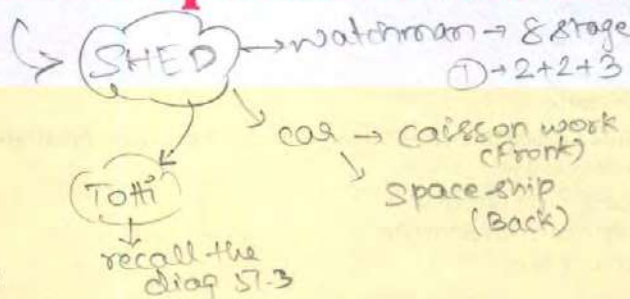 SHED → watchman → 8 stage
① → 2+2+3
car → caisson work
(Front)
Space-ship
(Back)
Totti
recall the
diag 57.3